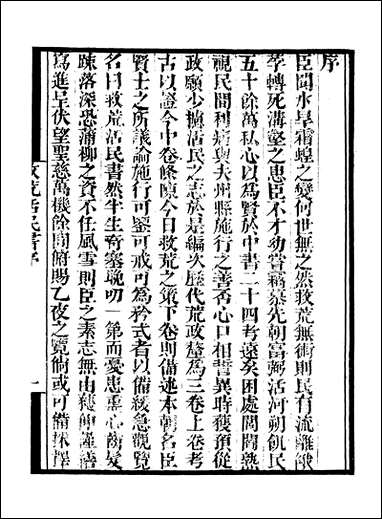 序
臣聞水旱霜蝗之變何世無之然救荒無術則民有流離餓
莩轉死溝壑之患臣不才幼嘗竊慕先朝富弼活河朔飢民
五十餘萬私心以為賢於中書二十四考遠矣困處閭閻熟
視民間利病與夫州縣施行之善否心口相誓異時獲預從
政願少攄活民之志於是編次歷代荒政釐為三卷上卷考
古以證今中卷條陳今日救荒之策下卷則備述本朝名臣
賢士之所議論施行可鑒可戒可為矜式者以備緩急觀覽
名曰救荒活民書然半生奇蹇晚叨一第而憂患熏心齒髮
踈落深恐蒲柳之資不任風雪則臣之素志無由獲伸謹繕
寫進呈伏望聖慈萬機餘閒俯賜乙夜之覽倘或可備採擇
救荒活民書序
一